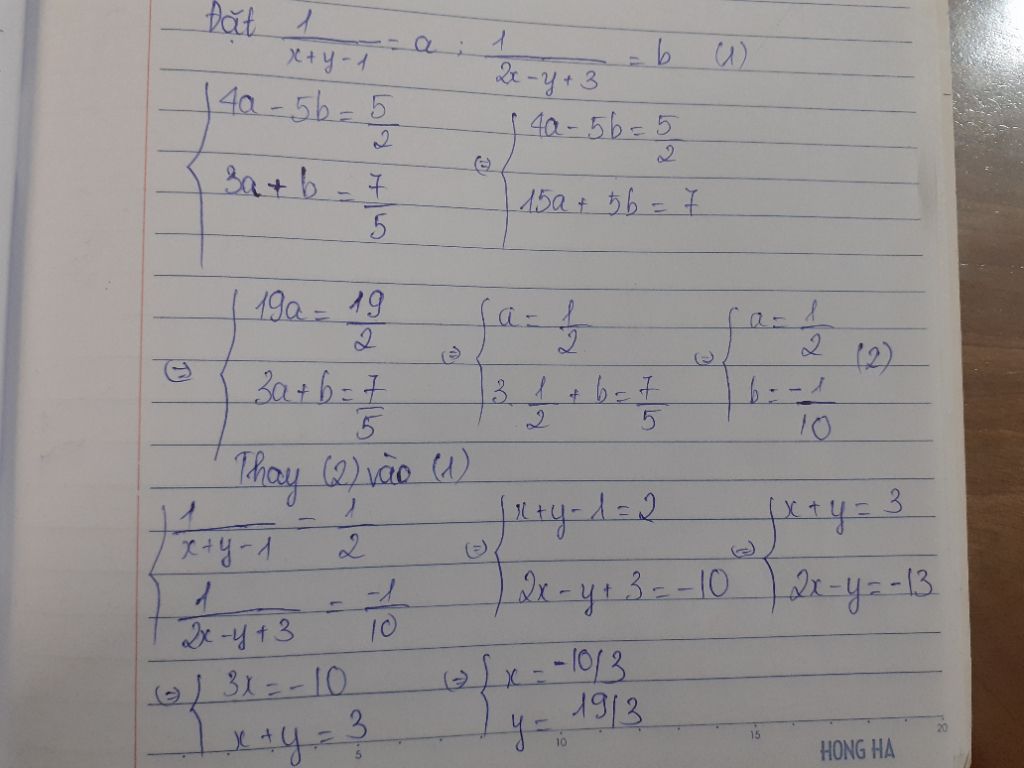 Đặt 1/(x+y-1) = a ; 1/(2x-y+3) = b (1)
{ 4a - 5b = 5/2 ; 3a + b = 7/5 (=) { 4a - 5b = 5/2 ; 15a + 5b = 7
(=) { 19a = 19/2 ; 3a + b = 7/5 (=) { a = 1/2 ; 3. 1/2 + b = 7/5 (=) { a = 1/2 ; b = -1/10 (2)
Thay (2) vào (1)
{ 1/(x+y-1) = 1/2 ; 1/(2x-y+3) = -1/10 (=) { x+y-1 = 2 ; 2x-y+3 = -10 (=) { x+y = 3 ; 2x-y = -13
(=) { 3x = -10 ; x+y = 3 (=) { x = -10/3 ; y = 19/3
5 10 15 20
HONG HA